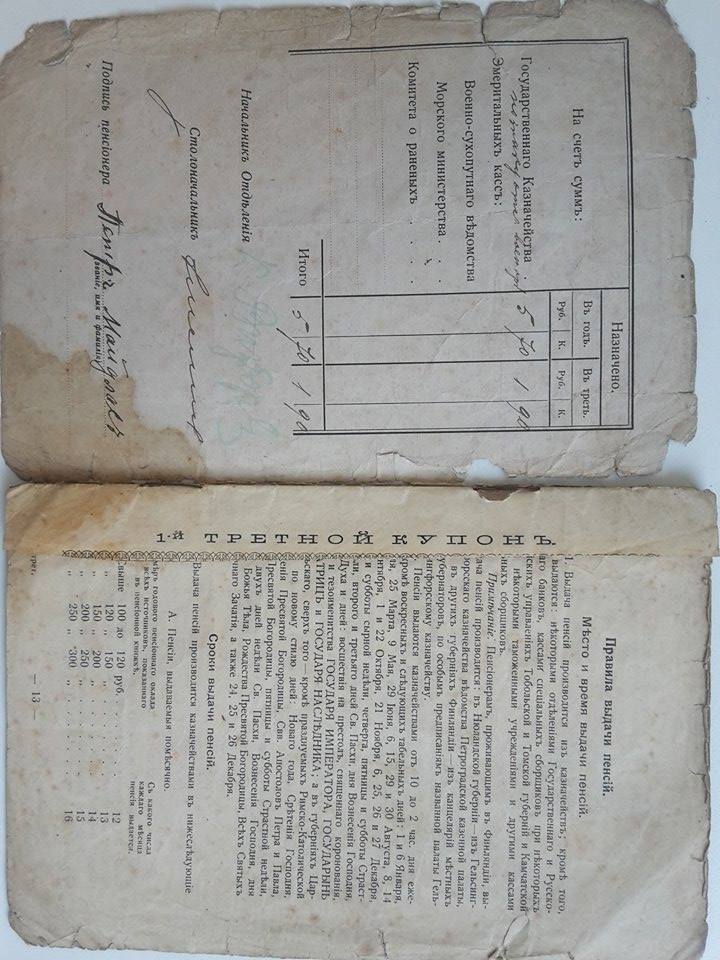 Назначено.
На счетъ суммъ:
Въ годъ.
Въ треть.
Руб.
К.
Руб.
К.
Государственнаго Казначейства
5
70
1
90
Эмеритальныхъ кассъ:
Военно-сухопутнаго вѣдомства
Морского министерства . .
Комитета о раненыхъ . . .
Итого
5
70
1
90
Начальникъ Отдѣленія
Столоначальникъ
Подпись пенсіонера Петръ Майданъ
(званіе, имя и фамилія)
1-й ТРЕТНОЙ КУПОНЪ.
Правила выдачи пенсій.
Мѣсто и время выдачи пенсій.
1. Выдача пенсій производится изъ казначействъ; кромѣ того,
выдаются: нѣкоторыми отдѣленіями Государственнаго и Русско-
аго банковъ, кассами спеціальныхъ сборщиковъ при нѣкоторыхъ
скихъ управленіяхъ Тобольской и Томской губерній и Камчатской
нѣкоторыми таможенными учрежденіями и другими кассами
ныхъ сборщиковъ.
Примѣчаніе. Пенсіонерамъ, проживающимъ въ Финляндіи, вы-
ача пенсій производится: въ Нюландской губерніи—изъ Гельсинг-
рорсскаго казначейства вѣдомства Петроградской казенной палаты,
въ другихъ губерніяхъ Финляндіи—изъ канцелярій мѣстныхъ
убернаторовъ, по особымъ предписаніямъ названной палаты Гель-
ингфорсскому казначейству.
Пенсіи выдаются казначействами отъ 10 до 2 час. дня еже-
кромѣ воскресныхъ и слѣдующихъ табельныхъ дней: 1 и 6 Января,
ля, 25 Марта, 9 Мая, 29 Іюня, 6, 15, 29 и 30 Августа, 8, 14
нтября, 1 и 22 Октября, 21 Ноября, 6, 25, 26 и 27 Декабря,
и субботы сырной недѣли, четверга, пятницы и субботы Страст-
ли, второго и третьяго дней Св. Пасхи, дня Вознесенія Господня,
Духа и дней: восшествія на престолъ, священнаго коронованія,
и тезоименитства ГОСУДАРЯ ИМПЕРАТОРА, ГОСУДАРЫНЬ
АТРИЦЪ и ГОСУДАРЯ НАСЛѢДНИКА; а въ губерніяхъ Цар-
ьскаго, сверхъ того—кромѣ празднуемыхъ Римско-Католической
по новому стилю дней: Новаго года, Срѣтенія Господня,
енія Пресвятой Богородицы, Свв. Апостоловъ Петра и Павла,
Пресвятой Богородицы, пятницы и субботы Страстной недѣли,
двухъ дней недѣли Св. Пасхи, Вознесенія Господня, дня
Божья Тѣла, Рождества Пресвятой Богородицы, Всѣхъ Святыхъ
чнаго Зачатія, а также 24, 25 и 26 Декабря.
Сроки выдачи пенсій.
Выдача пенсій производится казначействами въ нижеслѣдующіе
А. Пенсіи, выдаваемыя помѣсячно.
мѣръ годового пенсіоннаго оклада
всѣхъ источниковъ, показаннаго
въ пенсіонной книжкѣ.
Съ какого числа
каждаго мѣсяца
пенсія выдается.
свыше 100 до 120 руб. . . . 12
„ 120 „ 150 „ . . . 13
„ 150 „ 200 „ . . . 14
„ 200 „ 250 „ . . . 15
„ 250 „ 300 „ . . . 16
— 13 —
трет.